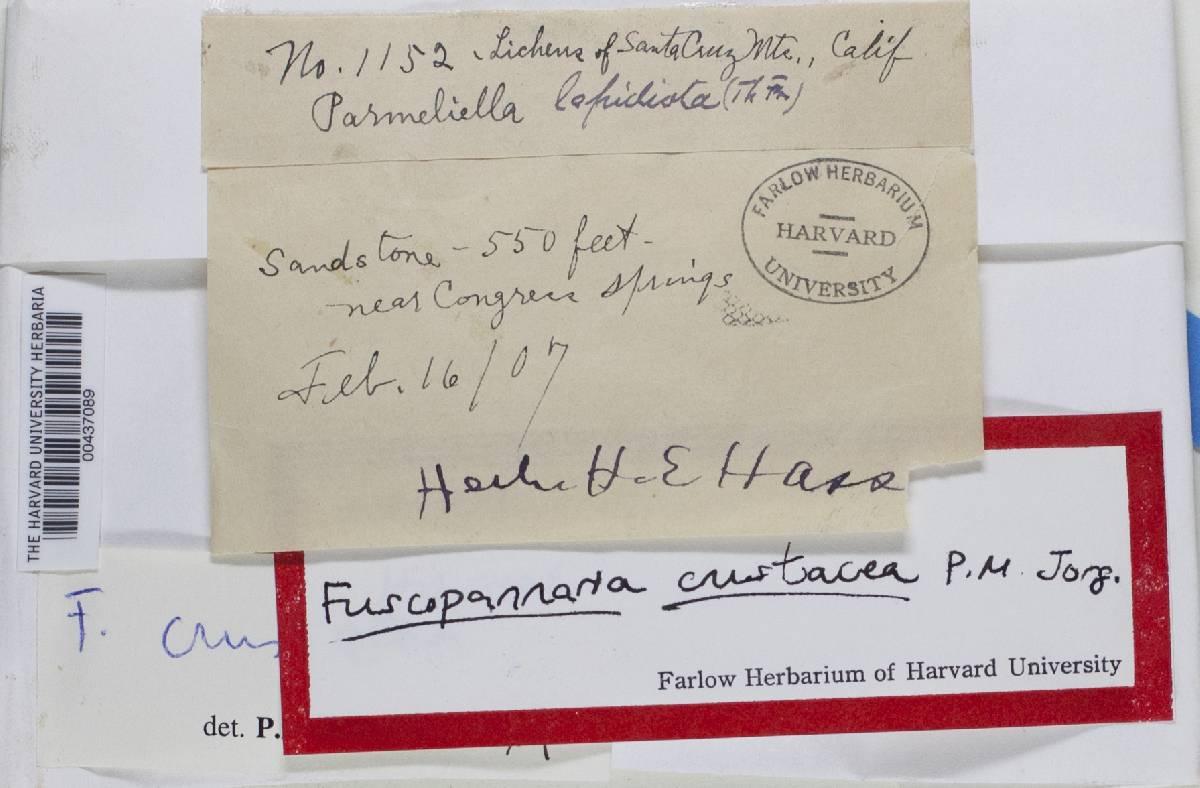 No. 1152 Lichens of Santa Cruz Mts., Calif
Parmeliella lepidiota (Th Fr)
FARLOW HERBARIUM
HARVARD
UNIVERSITY
Sandstone - 550 feet -
near Congress Springs
Feb. 16/07
Herb. H. E Hasse
THE HARVARD UNIVERSITY HERBARIA
00437089
Fuscopannaria crustacea P.M. Jorg.
Farlow Herbarium of Harvard University
F. crus
det. P.